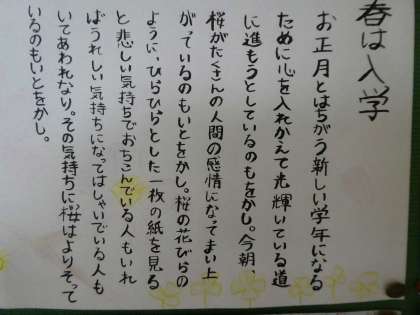 春は入学
お正月とはちがう新しい学年になる
ために心を入れかえて光輝いている道
に進もうとしているのもをかし。今朝、
桜がたくさんの人間の感情になってまい上
がっているのもいとをかし。桜の花びらの
ように、ひらひらとした一枚の紙を見る
と悲しい気持ちでおちこんでいる人もいれ
ばうれしい気持ちになってはしゃいでいる人も
いてあわれなり。その気持ちに桜はよりそって
いるのもいとをかし。